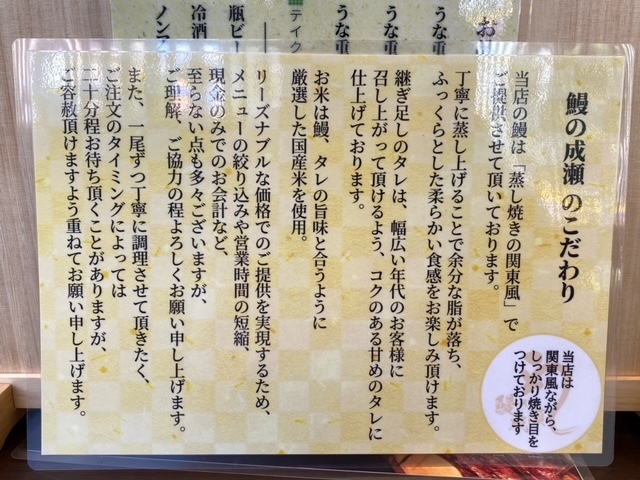 お
うな重
うな重
うな重
テイク
瓶ビー
冷酒
ノンア
鰻の成瀬のこだわり
当店の鰻は「蒸し焼きの関東風」で
ご提供させて頂いております。
丁寧に蒸し上げることで余分な脂が落ち、
ふっくらとした柔らかい食感をお楽しみ頂けます。
継ぎ足しのタレは、幅広い年代のお客様に
召し上がって頂けるよう、コクのある甘めのタレに
仕上げております。
お米は鰻、タレの旨味と合うように
厳選した国産米を使用。
リーズナブルな価格でのご提供を実現するため、
メニューの絞り込みや営業時間の短縮、
現金のみでのお会計など、
至らない点も多々ございますが、
ご理解、ご協力の程よろしくお願い申し上げます。
また、一尾ずつ丁寧に調理させて頂きたく、
ご注文のタイミングによっては
二十分程お待ち頂くことがありますが、
ご容赦頂けますよう重ねてお願い申し上げます。
当店は
関東風ながら、
しっかり焼き目を
つけております